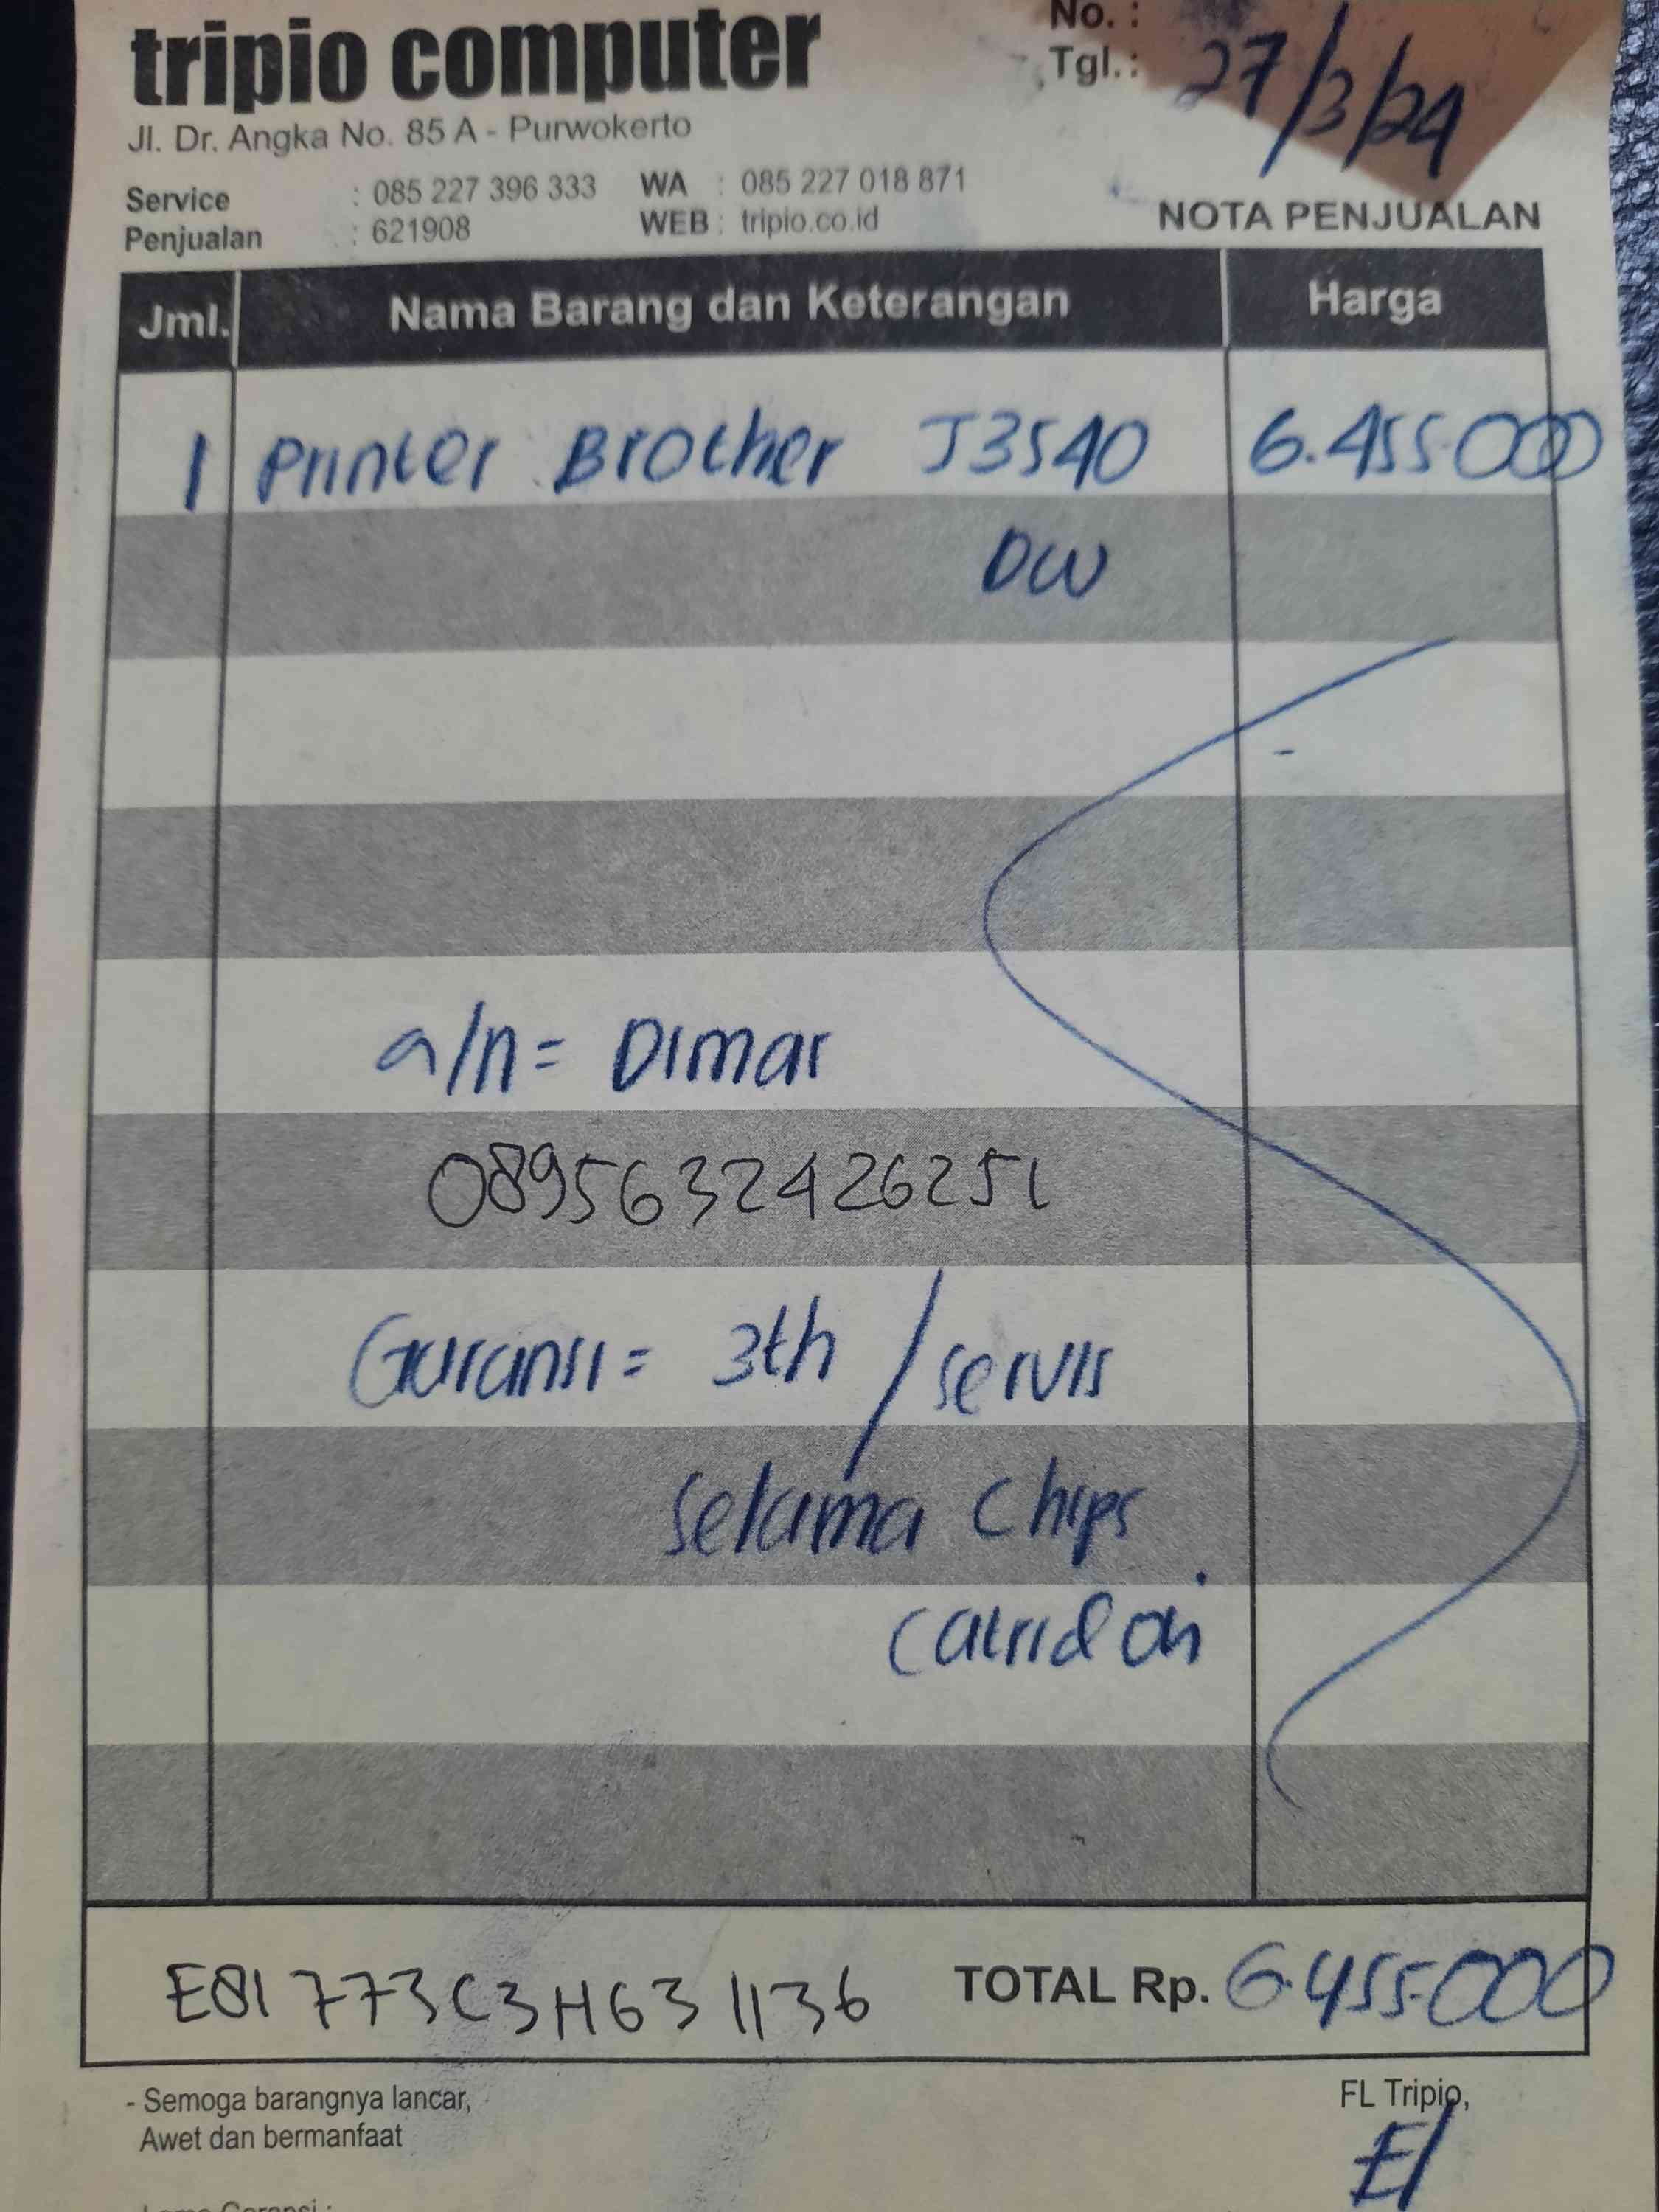 tripio computer
No. :
Tgl. : 27/3/24
Jl. Dr. Angka No. 85 A - Purwokerto
Service : 085 227 396 333 WA : 085 227 018 871
Penjualan : 621908 WEB : tripio.co.id
NOTA PENJUALAN
Jml. Nama Barang dan Keterangan Harga
1 Printer Brother J3540 6.455.000
DW
a/n = Dimar
0895632426251
Garansi = 3th / servis
selama chips
TOTAL Rp. 6.455.000
E81773C3H631136
- Semoga barangnya lancar,
Awet dan bermanfaat
FL Tripio,